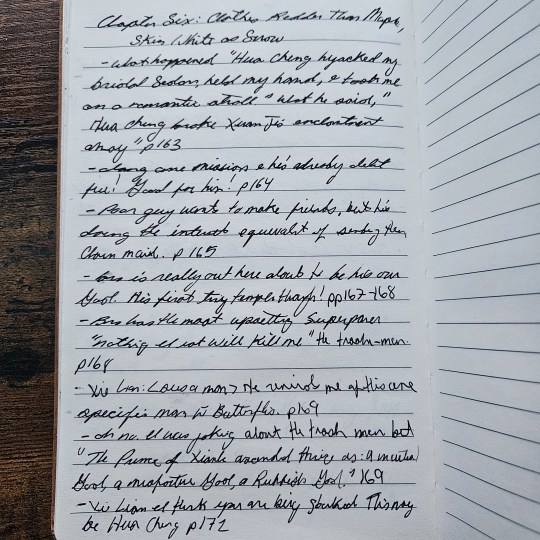 Chapter Six: Clothes Redder Than Maple,
Skin White as Snow
- What happened "Hua Cheng hijacked my
bridal Sedan, held my hand, & took me
on a romantic stroll" what he said,"
Hua Cheng broke Xuan Ji's enchantment
array" p163
- doing one mission & he's already debt
free! Good for him! p164
- Poor guy wants to make friends, but he's
doing the internet equivalent of sending them
Chain mail. p165
- bro is really out here about to be his own
God. His first tiny temple though! pp167-168
- Bro has the most upsetting Superpower
"nothing I eat will kill me" the trash-man.
p168
- Xie Lian: Lou a man> He reminds me of this one
specific man w/ Butterflies. p169
- oh no. I was joking about the trash man but
"The Prince of Xianle ascended thrice as: a martial
God, a misfortune God, a Rubbish God." 169
- Xie Lian I think you are being stalked This may
be Hua Cheng p172